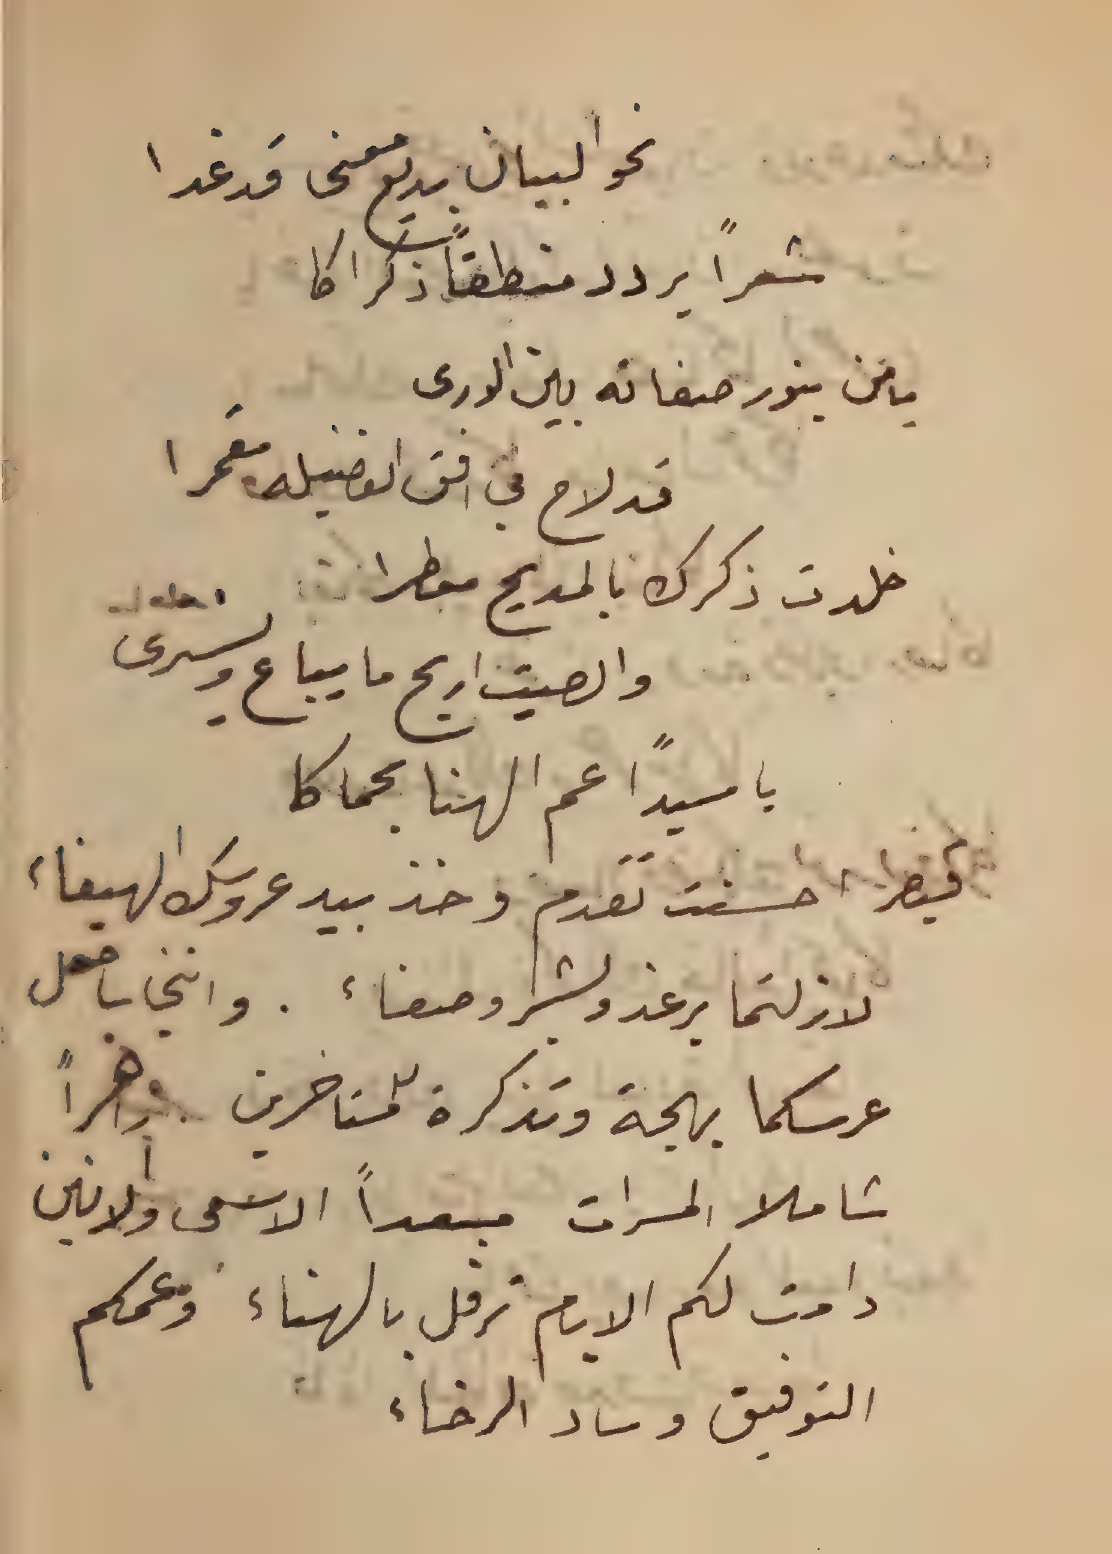 نحو البيان بديع معنى قد غدا
شعراً يردد منطقاً ذكراكا
يا من بنور صفاته بين الورى
قد لاح في افق الفضيله مقمرا
خلدت ذكرك بالمديح معطرا
والصيت اربح ما يباع ويشرى
يا سيداً عم الهنا بحماكا
قيصر احسنت تقدم وخذ بيد عروسك الهيفاء
لازلتما برغد وبشر وصفاء . وانني باحفل
عرسكما بهجة وتذكرة للمتاخرين زاهراً
شاملا المسرات مبعداً الاسى والانين
دامت لكم الايام ترفل بالهناء وعمكم
التوفيق وساد الرخاء